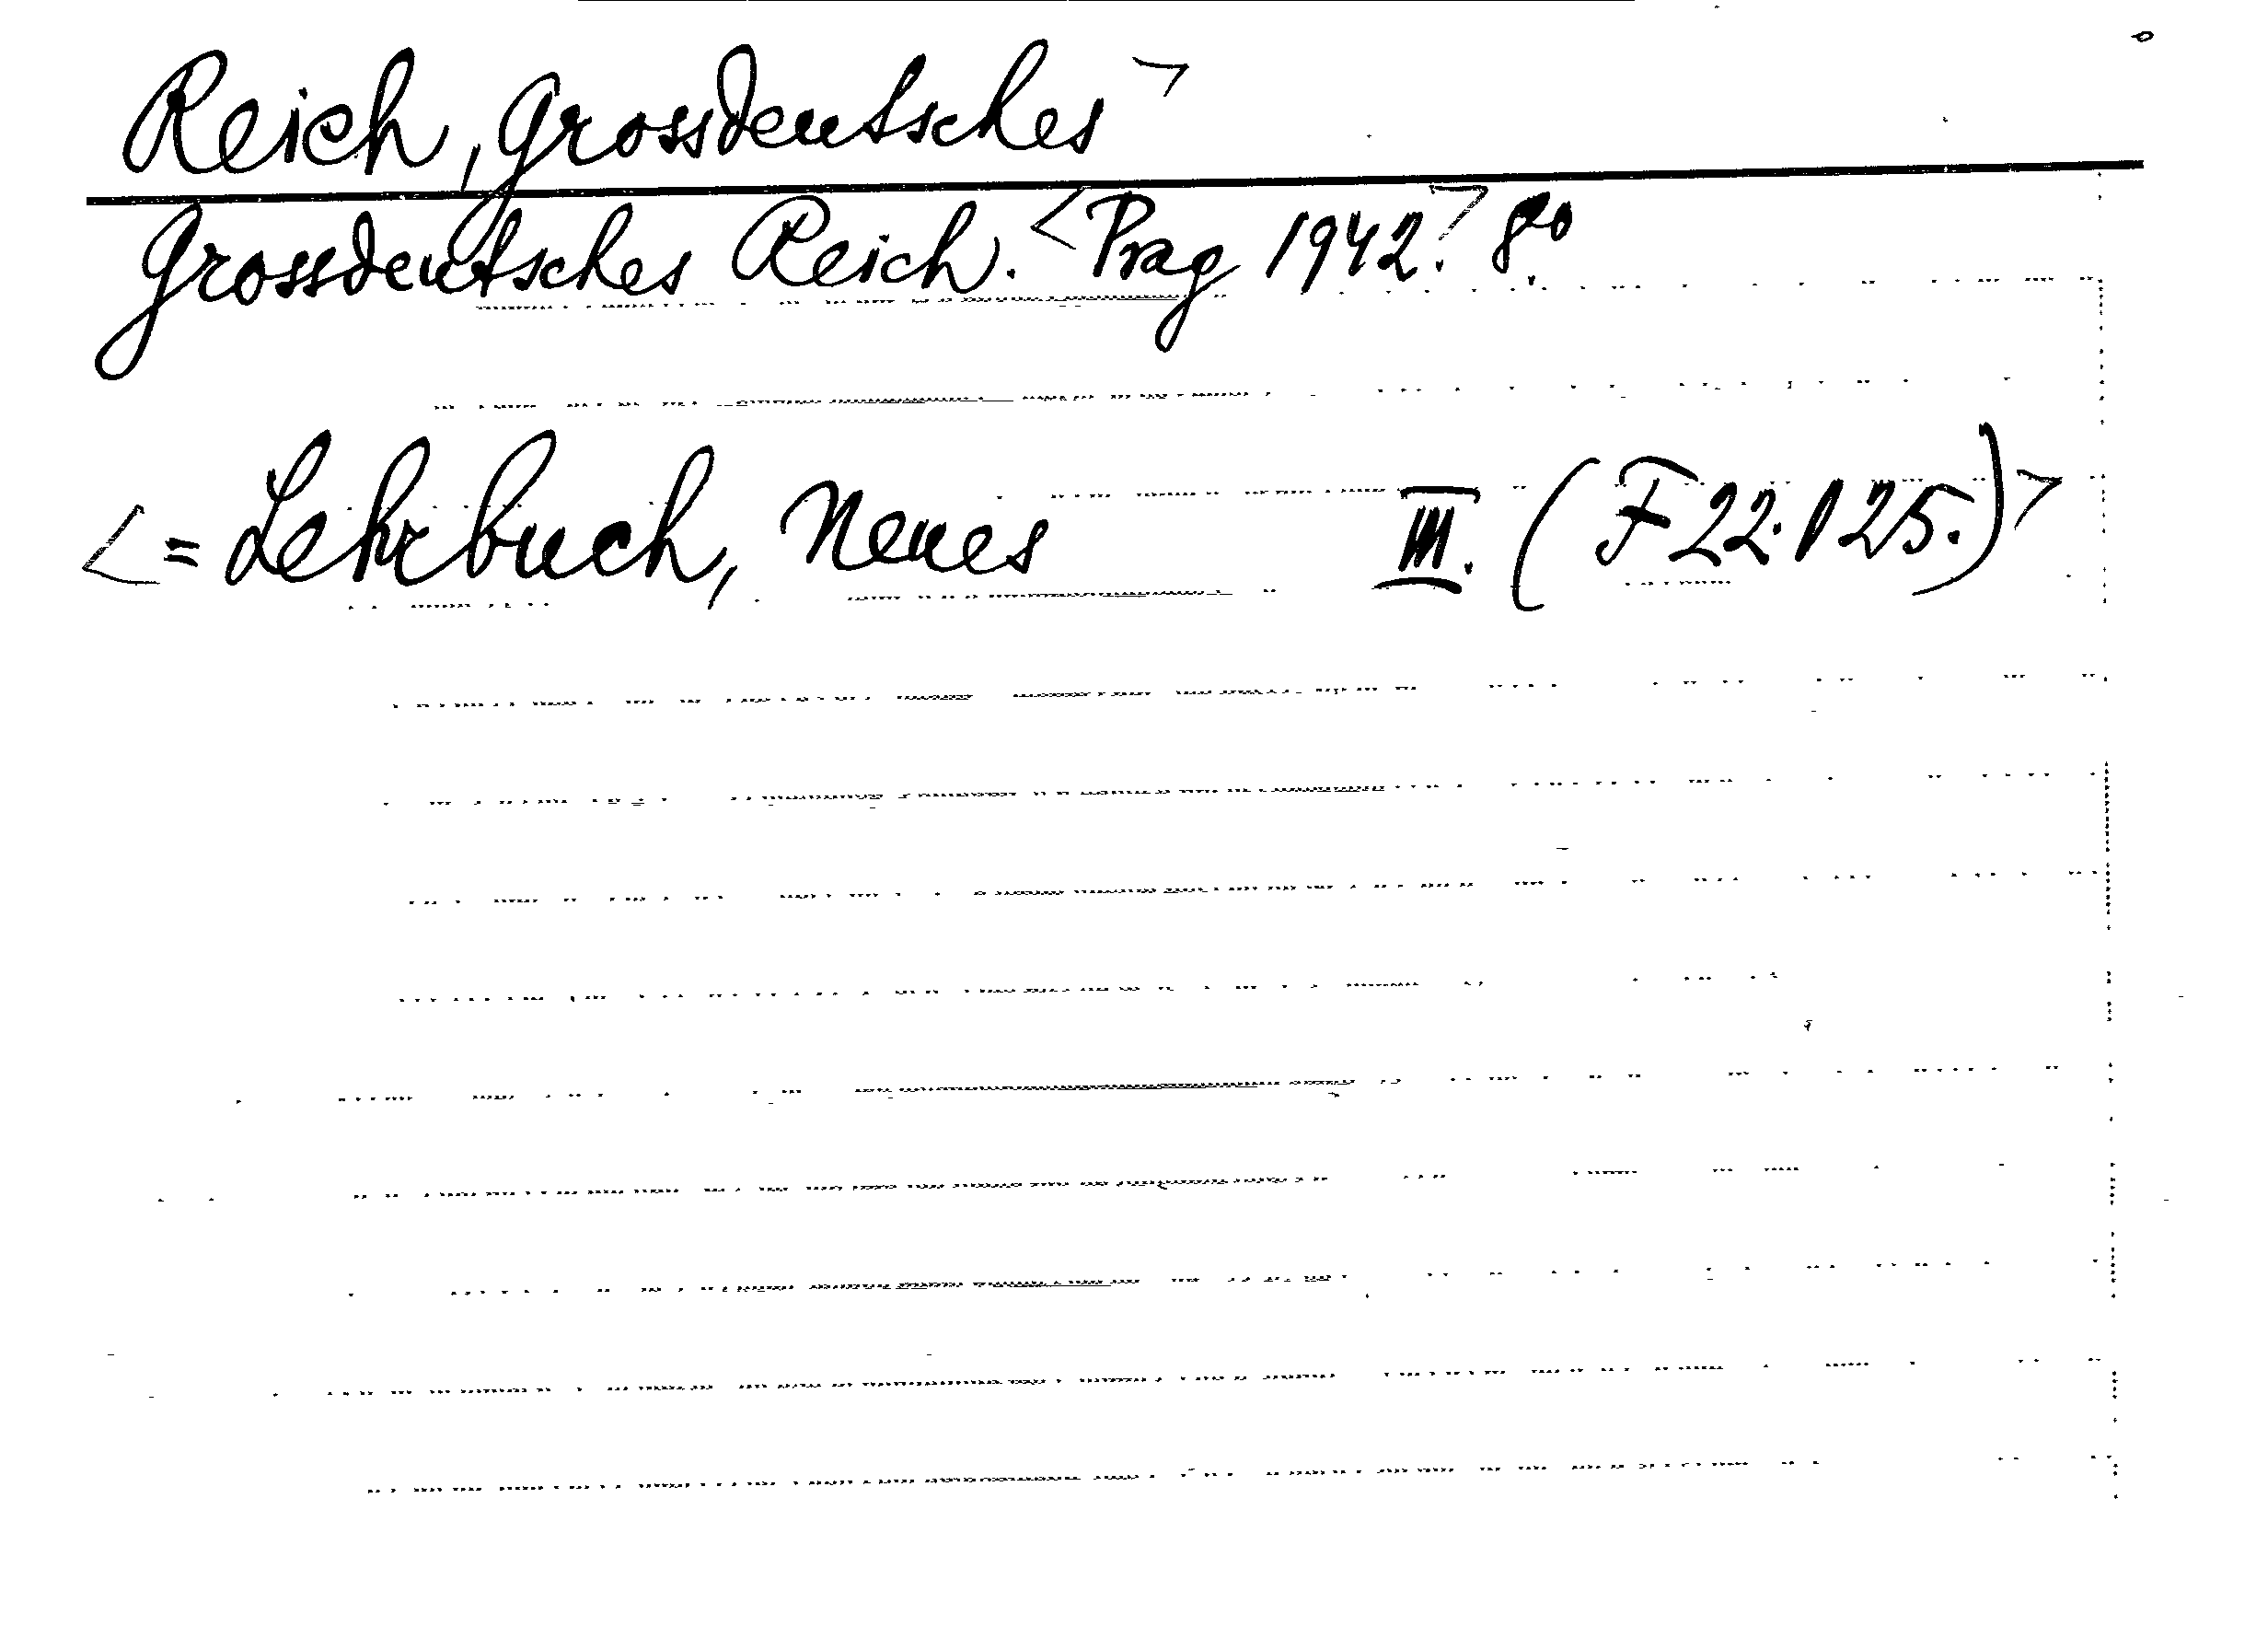 Reich, Grossdeutsches >
Grossdeutsches Reich. <Prag 1942.> 8°.
<= Lehrbuch, Neues III. (F22.125.)>